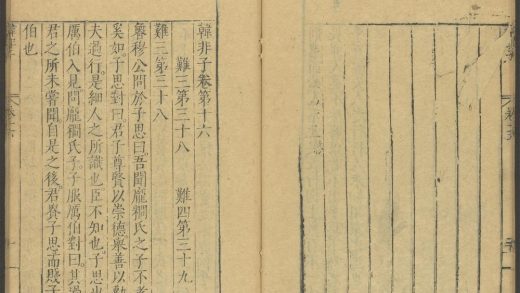 韓非子卷第十六
難三第三十八 難四第三十九
難三第三十八
魯穆公問於子思曰吾聞龐𥚽氏之子不孝
奚如子思對曰君子尊賢以崇德舉善以勸
夫過行是細人之所識也臣不知也子思出
厲伯入見問龐𥚽氏子子服厲伯對曰其過
君之所未嘗聞自是之後君貴子思而賤子
伯也